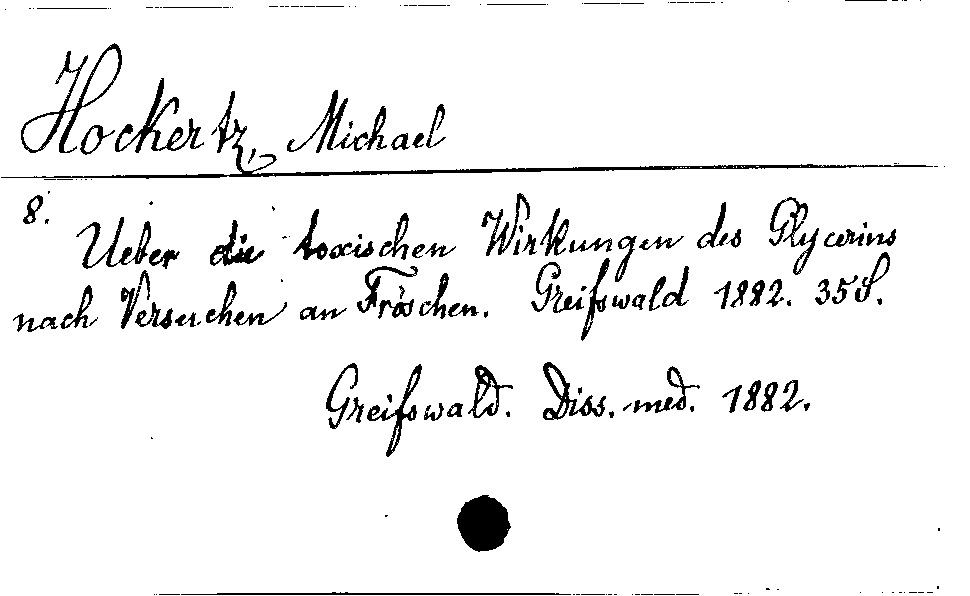 Hockertz, Michael
8.
Ueber die toxischen Wirkungen des Glycerins
nach Versuchen an Fröschen. Greifswald 1882. 35 S.
Greifswald. Diss. med. 1882.